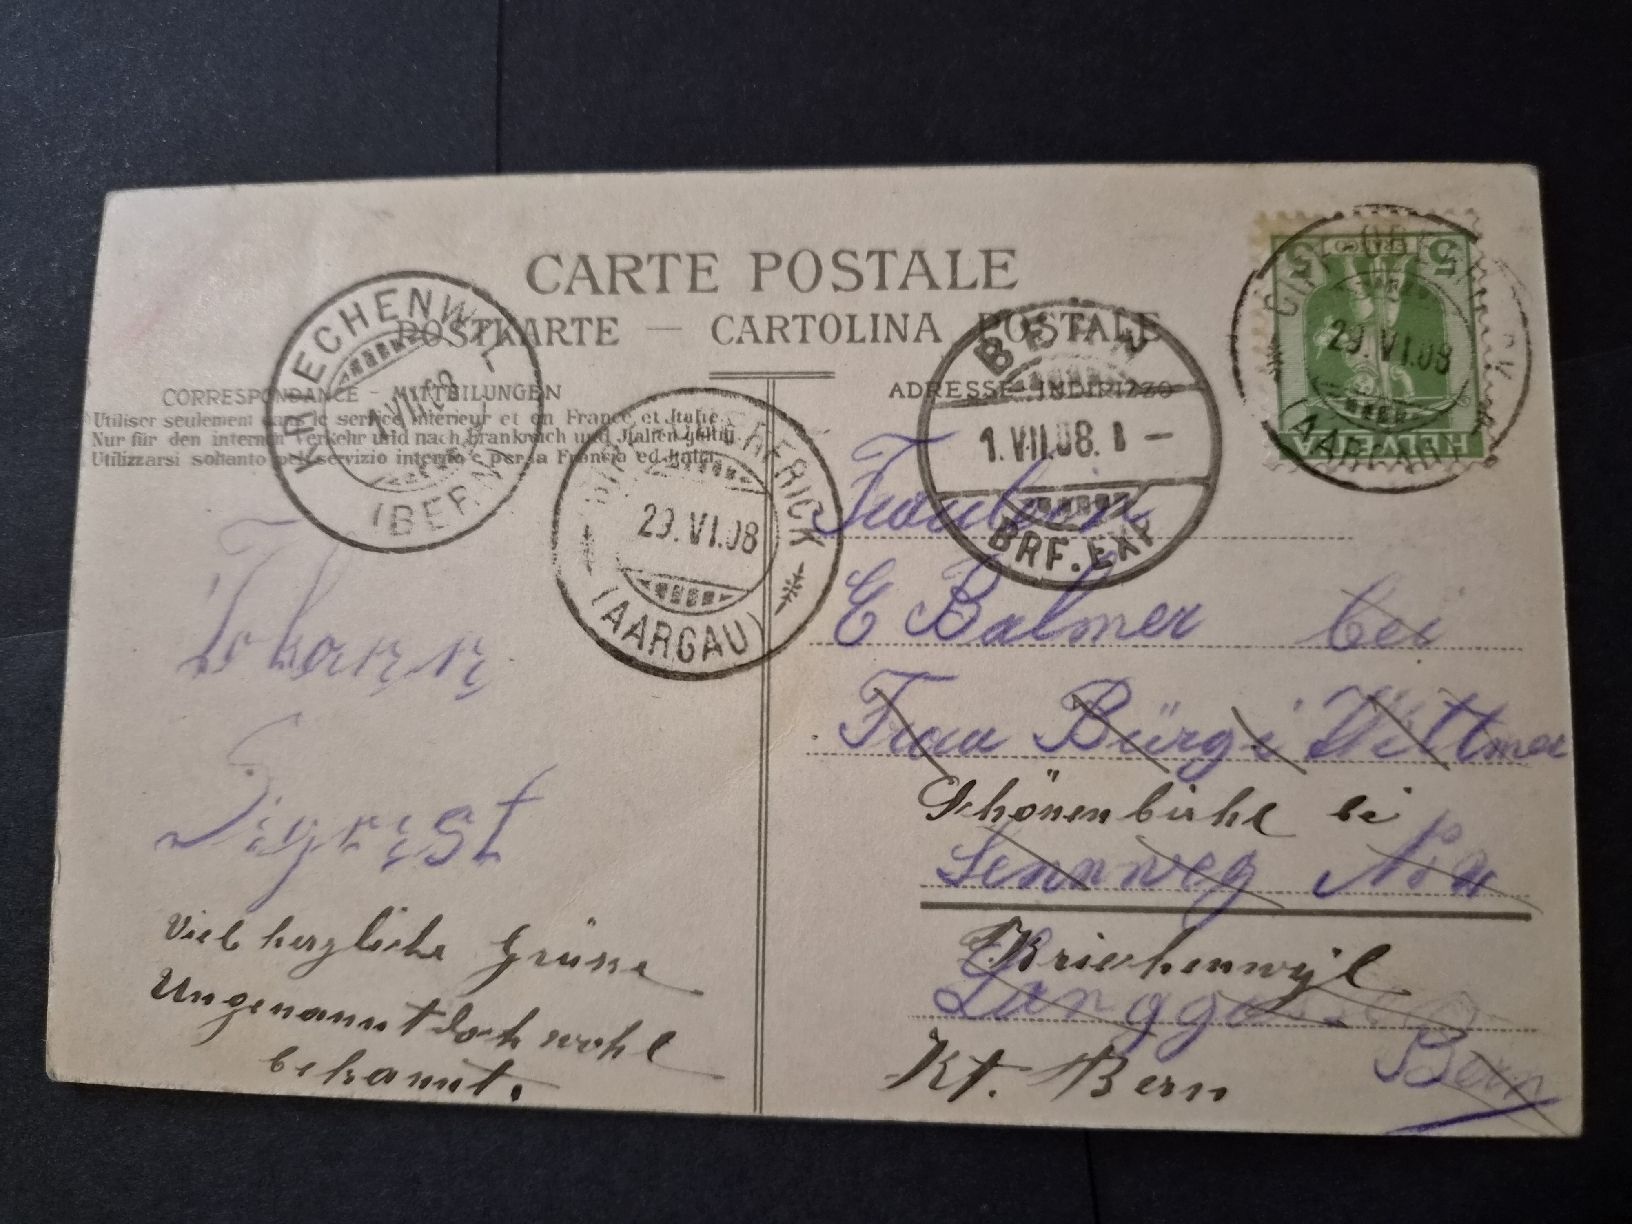 CARTE POSTALE
POSTKARTE — CARTOLINA POSTALE
CORRESPONDANCE – MITTEILUNGEN
Utiliser seulement dans le service intérieur et en France et Italie.
Nur für den internen Verkehr und nach Frankreich und Italien gültig.
Utilizzarsi soltanto pel servizio interno e per la Francia ed Italia.
ADRESSE–INDIRIZZO
KRIECHENWIL
1.VII.08
(BERN)
OBERFRICK
29.VI.08
(AARGAU)
BERN
1.VII.08.
BRF.EXP.
29.VI.08
(AARGAU)
5 FRANCO 5
HELVETIA
Johann
Sigrist
Viel herzliche Grüsse
Ungenannt doch wohl
bekannt.
Fraulein
E Balmer bei
Frau Bürgi Wittmer
Schönenbühl bei
Sennweg
Kriechenwyl
Bern
Kt. Bern